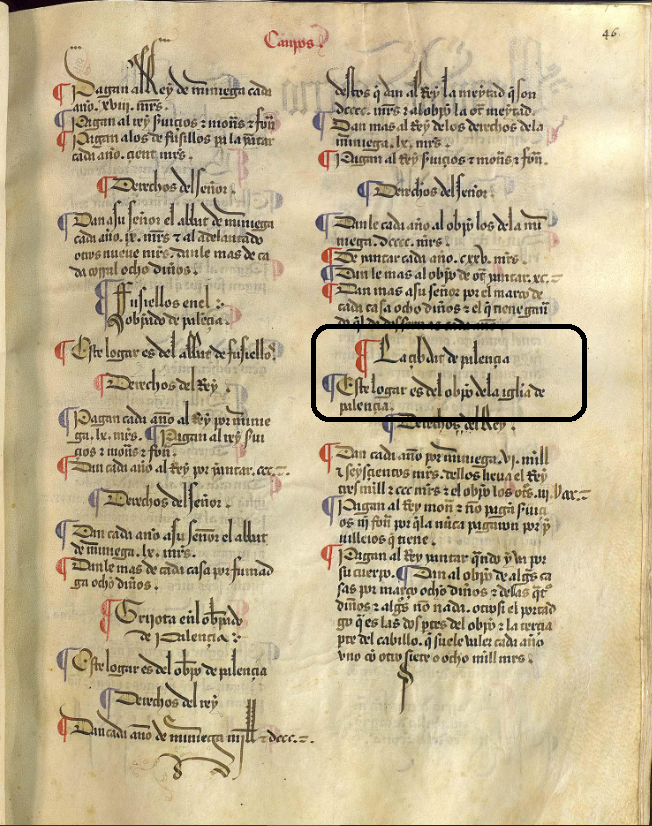 Campos
46
Pagan al Rey de miniega cada
año. xviii. mrs.
Pagan al rey seruiçios & monedas & fon
Pagan a los de fusillos por la
cada año. çient mrs.
Derechos del Señor.
Dan a su señor el abbat de miniega
cada año. ix. mrs & al adelantado
otros nueue mrs. danle mas de ca
da ocho dineros.
Fusiellos en el
obispado de palençia.
Este logar es del abbat de fusiellos
Derechos del Rey
Pagan cada año al Rey por munie
ga. lx. mrs. Pagan al rey serui
çios & monedas & fon.
Dan cada año al Rey por yantar. ccc.
Derechos del Señor.
Dan cada año a su Señor el abbat
de miniega. lx. mrs.
Danle mas de cada casa por fumad
ga ocho dineros.
Grijota en el obispado
de Palençia
Este logar es del obispo de palençia
Derechos del rey
Dan cada año de miniega mill & dccc.
destos que dan al Rey la meytad que son
dcccc. mrs & al obispo la otra meytad.
Dan mas al Rey de los derechos de la
miniega. lx. mrs.
Pagan al Rey seruiçios & monedas & fon.
Derechos del Señor.
Danle cada año al obispo los de la mu
niega. dcccc. mrs.
De yantar cada año. cxxv. mrs.
Dan le mas al obispo de otra yantar. xc.
Dan mas a su señor por el março de
cada casa ocho dineros & el que tiene
La çibdat de palençia
Este logar es del obispo de la iglia de
palençia.
Derechos del Rey
Dan cada año por muniega. vi. mill
& seysçientos mrs. dellos lieua el Rey
tres mill & ccc mrs & el obispo los otros. iii.
Pagan al Rey moneda & no pagan serui
os ni fon por que la nunca pagaron por
que tiene.
Pagan al Rey yantar quando y va por
su cuerpo. Dan al obispo de algunas ca
sas por março ocho dineros & dellas
dineros & algunas no nada. otrosi el portad
go que es las dos partes del obispo & la terçia
parte del cabillo. que suele valer cada año
vno con otro siete o ocho mill mrs.